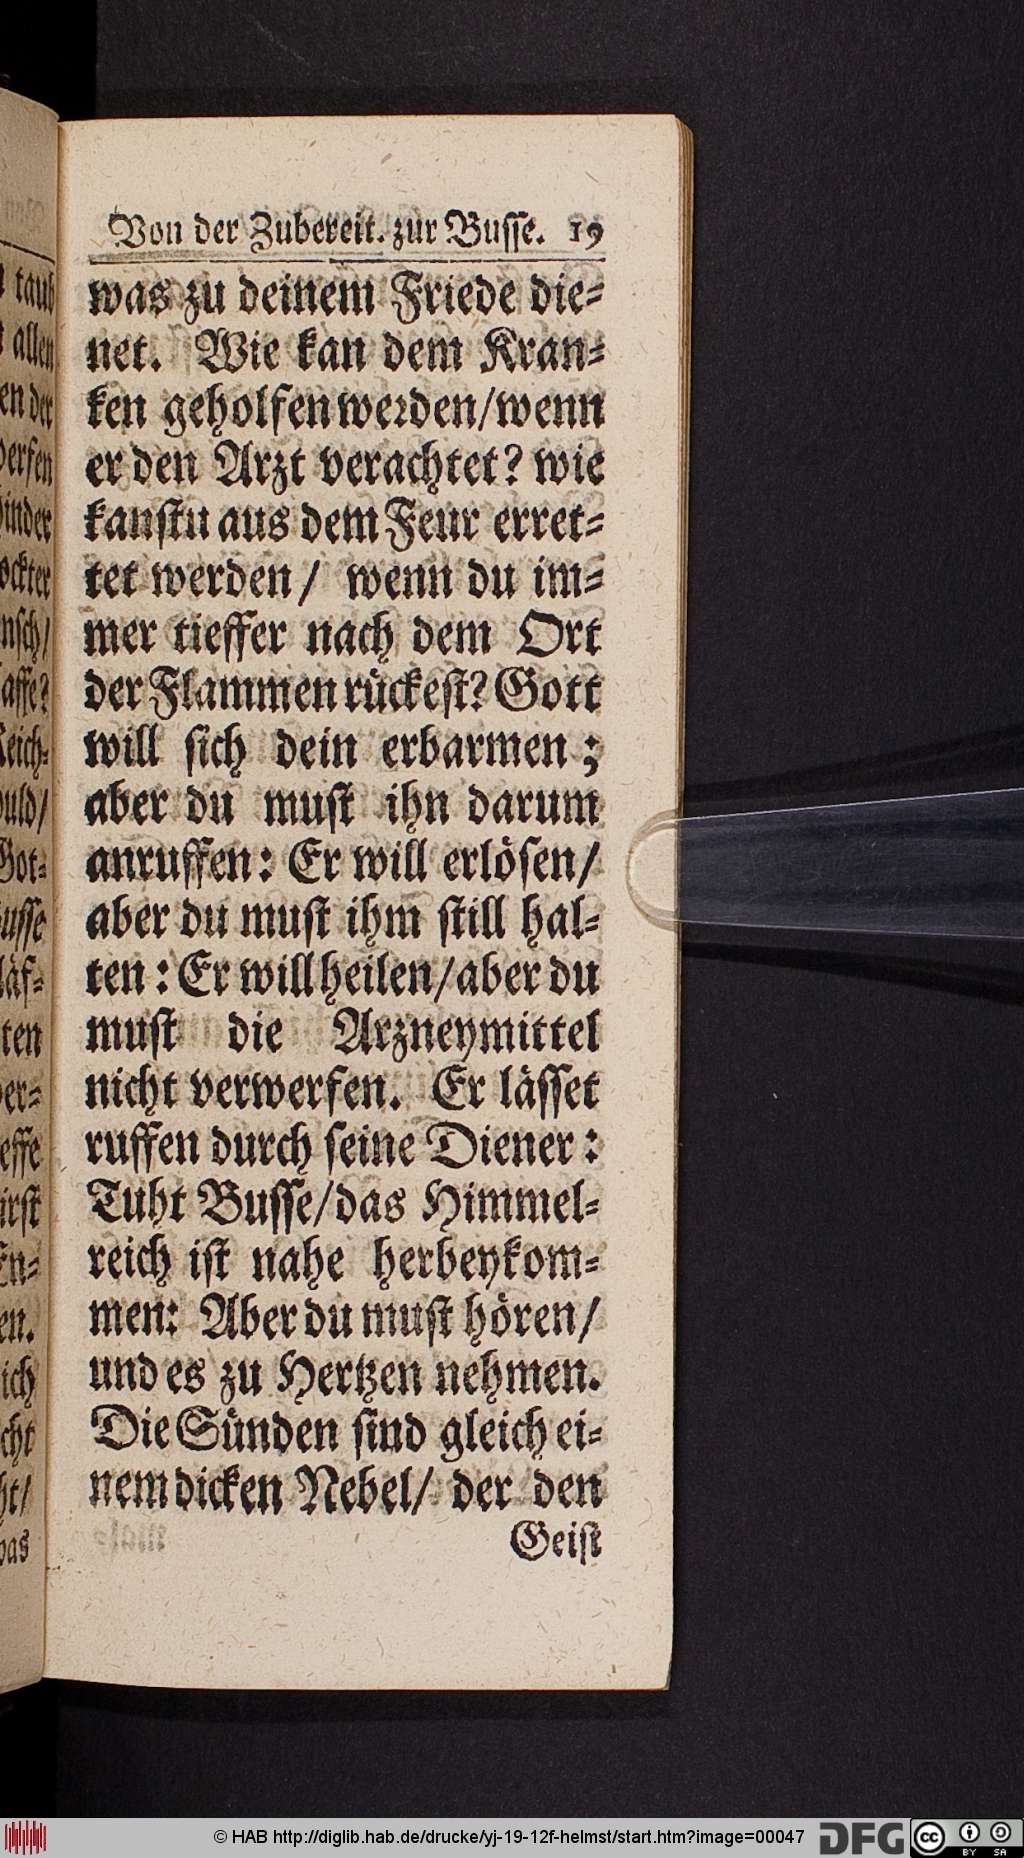 Von der Zubereit. zur Busse. 19
was zu deinem Friede die-
net. Wie kan dem Kran-
ken geholfen werden/wenn
er den Arzt verachtet? wie
kanstu aus dem Feur erret-
tet werden/ wenn du im-
mer tieffer nach dem Ort
der Flammen rückest? Gott
will sich dein erbarmen;
aber du must ihn darum
anruffen: Er will erlösen/
aber du must ihm still hal-
ten: Er will heilen/aber du
must die Arzneymittel
nicht verwerfen. Er lässet
ruffen durch seine Diener:
Tuht Busse/das Himmel-
reich ist nahe herbeykom-
men: Aber du must hören/
und es zu Hertzen nehmen.
Die Sünden sind gleich ei-
nem dicken Nebel/ der den
Geist
taub
allen
© HAB http://diglib.hab.de/drucke/yj-19-12f-helmst/start.htm?image=00047
DFG
cc
BY SA